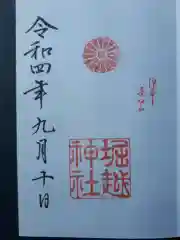 令和四年九月十日
堀越
神社